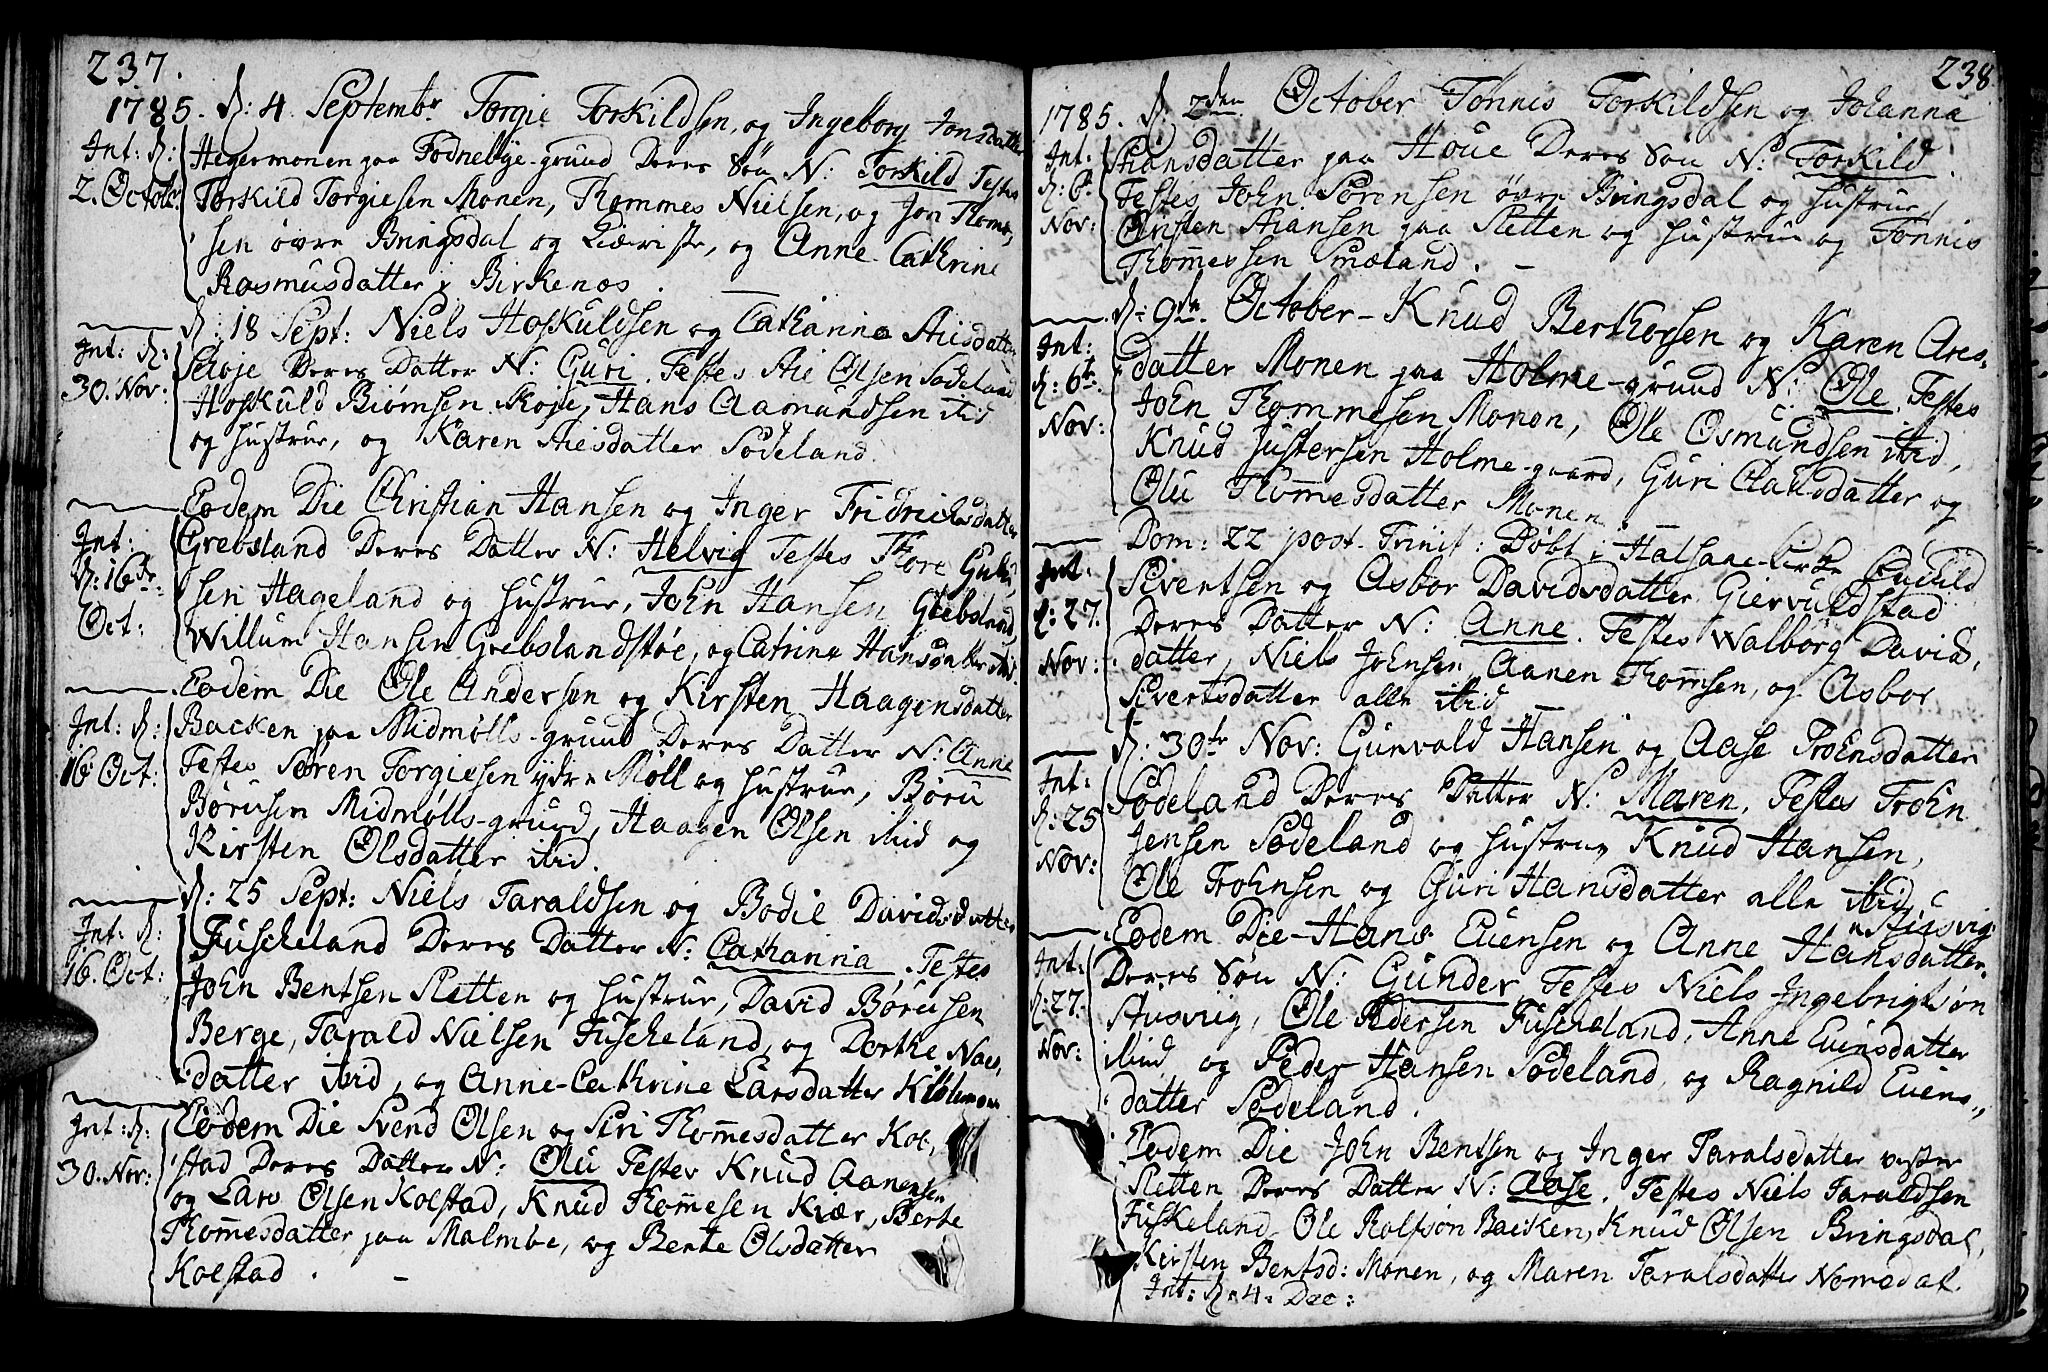 237.
1785. D: 4 Septembr Torgie Torkildsen, og Ingeborg Jonsdatter
Int: D: 2. Octobr:
Hegermonen paa Fodnebye-grund Deres Søn N: Torkild Testes
Torkild Torgiesen Monen, Thommes Nielsen, og Jon Thome,
sen øvre Bringsdal og Kiæriste, og Anne Cathrine
Rasmusdatter i Birkenos.
D: 18 Sept: Niels Hoskuldsen og Catharina Aiesdatter
Int: D: 30. Nov:
Skoje Deres Datter N: Guri. Testes Aie Olsen Sødeland
Hoskuld Biørnsen Skoje, Hans Aamundsen ibid
og Hustrue, og Karen Aiesdatter Sødeland.
Eodem Die Christian Hansen og Inger Fridrichsdatter
Int: D: 16de Oct:
Grebsland Deres Datter N: Helvig Testes Thore
sen Hageland og Hustrue, John Hansen Grebsland,
Willum Hansen Grebslandstøe, og Catrine Hansdatter ibid.
Eodem Die Ole Andersen og Kirsten Haagensdatter
Int: D: 16 Oct:
Backen paa Midmølls-grund Deres Datter N: Anne
Testes Søren Torgiesen ydre Møll og Hustrue, Børu
Børusen Midmølls-grund, Haagen Olsen ibid og
Kirsten Olsdatter ibid.
D: 25 Sept: Niels Taraldsen og Bodil Davidsdatter
Int: D: 16. Oct:
Fuskeland Deres Datter N: Catharina. Testes
John Bentsen Sletten og Hustrue, David Børusen
Berge, Tarald Nielsen Fuskeland, og Dorthe Noes,
datter ibid, og Anne-Cathrine Larsdatter
Eodem Die Svend Olsen og Siri Thommesdatter Kol,
Int: D: 30. Nov:
stad Deres Datter N: Olu Testes Knud Aanensen
og Lars Olsen Kolstad, Knud Thommesen Kiær, Berte
Thommesdatter paa Malmbe, og Bente Olsdatter
Kolstad.
238
1785. D: 2den October Tønnis Torkildsen og Johanna
Int: D: 6te Nov:
Hansdatter paa Houe Deres Søn N: Torkild.
Testes John Sørensen øvre Bringsdal og Hustrue,
Christen Aiansen paa Sletten og Hustrue og Tønnis
Thommessen Smæland.
D: 9de October Knud Berthorsen og Karen Ares,
Int: D: 6te Nov:
datter Monen paa Holme-grund N: Ole. Testes
John Thommesen Monen, Ole Osmundsen ibid,
Knud Justersen Holme-gaard, Guri Clausdatter og
Olu Thommesdatter Monen
Dom: 22 post Trinit: Døbt i Halsaae-Kirke
Int: D: 27. Nov:
Sivertsen og Asbor Davidsdatter Giervuldstad
Deres Datter N: Anne. Testes Walborg Davids,
datter, Niels Johnsen, Aanen Thomsen, og Asbor
Sivertsdatter alle ibid
D: 30te Nov: Gunvald Hansen og Aase Trohnsdatter
Int: D: 25 Nov:
Sødeland Deres Datter N: Maren. Testes Trohn
Jensen Sødeland og Hustrue, Knud Hansen,
Ole Trohnsen og Guri Hansdatter alle ibid
Eodem Die Hans Evensen og Anne Hansdatter Stusvig
Int: D: 27. Nov:
Deres Søn N: Gunder Testes Niels Ingebrigtsøn
Stusvig, Ole Pedersen Fuskeland, Anne Evensdatter
ibid, og Peder Hansen Sødeland, og Ragnild Evens,
datter Sødeland.
Eodem Die John Bentsen og Inger Taralsdatter vester
Sletten Deres Datter N: Aase. Testes Niels Taraldsen
Fuskeland, Ole Rolfsøn Backen, Knud Olsen Bringsdal,
Kirsten Bentsd: Monen, og Maren Taralsdatter Nomedal.
Int: D: 4. Dec: